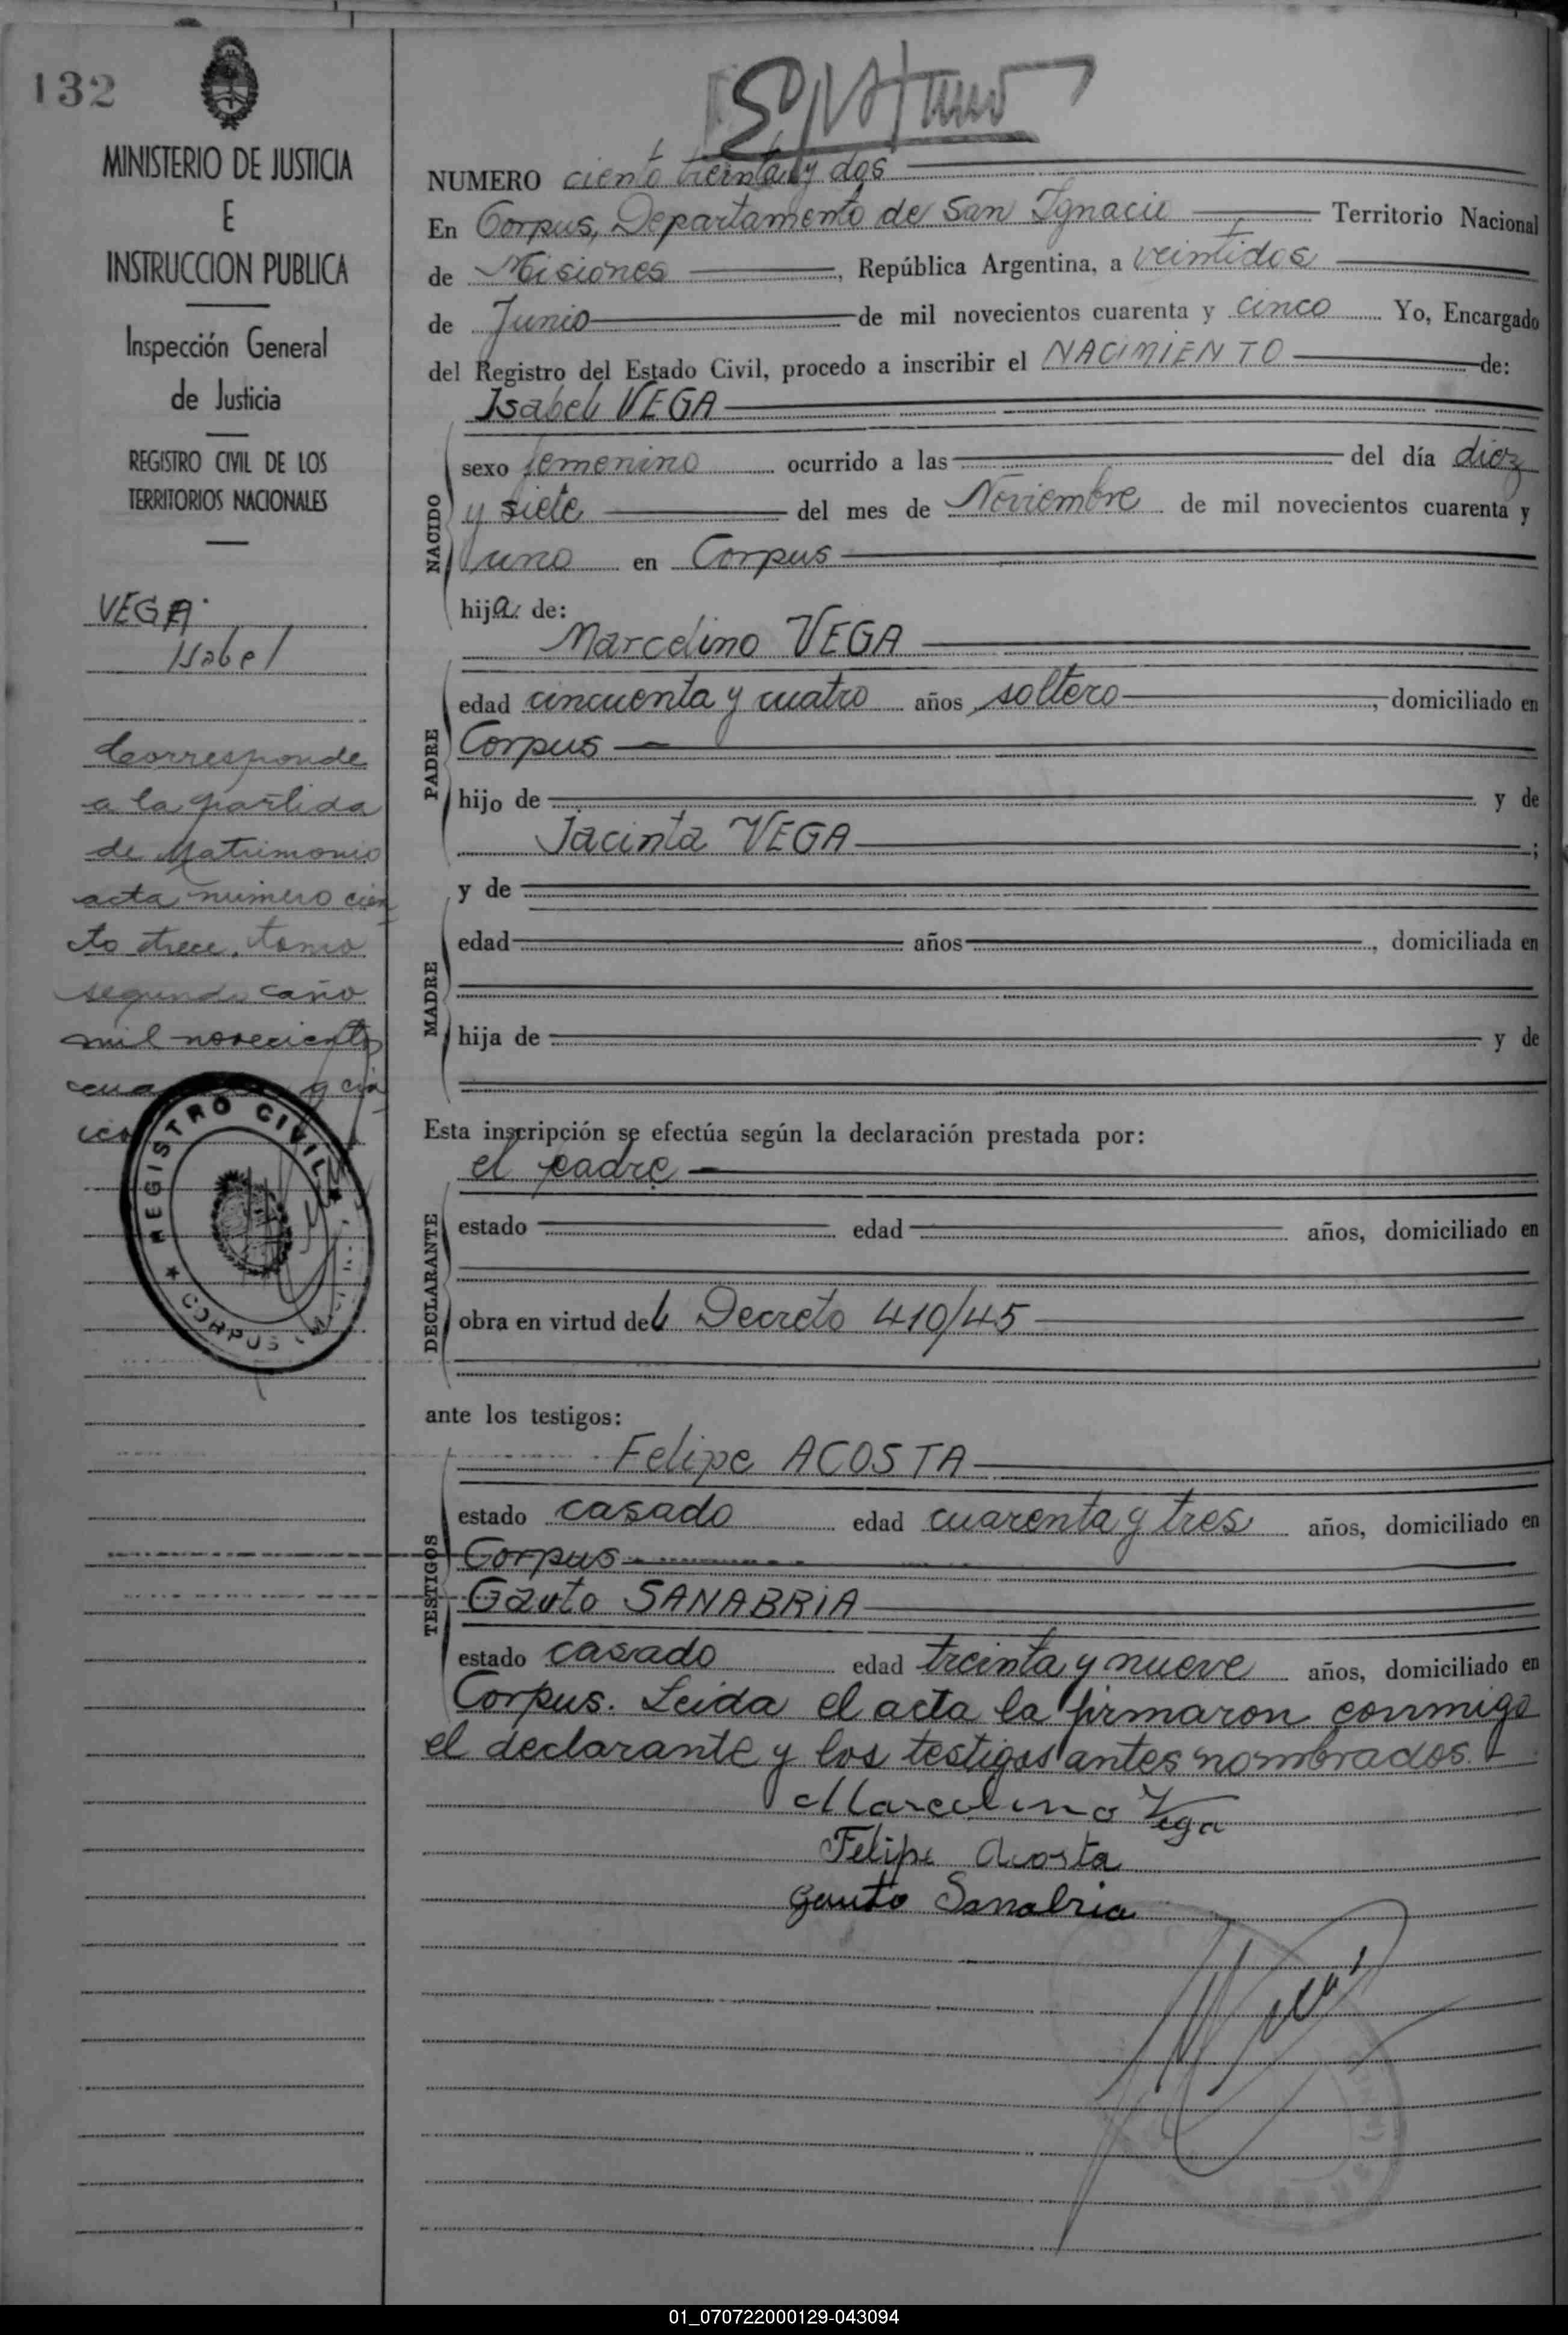 132
MINISTERIO DE JUSTICIA
E
INSTRUCCION PUBLICA
Inspección General
de Justicia
REGISTRO CIVIL DE LOS
TERRITORIOS NACIONALES
VEGA
Isabel
Corresponde
a la partida
de Matrimonio
acta número cien
to trece, tomo
segundo año
mil novecientos
y cin
co
REGISTRO CIVIL
CORPUS
NUMERO ciento treinta y dos
En Corpus, Departamento de San Ignacio Territorio Nacional
de Misiones, República Argentina, a veintidos
de Junio de mil novecientos cuarenta y cinco Yo, Encargado
del Registro del Estado Civil, procedo a inscribir el NACIMIENTO de:
Isabel VEGA
NACIDO
sexo femenino ocurrido a las del día diez
y siete del mes de Noviembre de mil novecientos cuarenta y
uno en Corpus
hija de:
Marcelino VEGA
PADRE
edad cincuenta y cuatro años soltero, domiciliado en
Corpus
hijo de y de
Jacinta VEGA;
MADRE
y de
edad años, domiciliada en
hija de y de
Esta inscripción se efectúa según la declaración prestada por:
el padre
DECLARANTE
estado edad años, domiciliado en
obra en virtud del Decreto 410/45
ante los testigos:
TESTIGOS
Felipe ACOSTA
estado casado edad cuarenta y tres años, domiciliado en
Corpus
Gauto SANABRIA
estado casado edad treinta y nueve años, domiciliado en
Corpus. Leida el acta la firmaron conmigo
el declarante y los testigos antes nombrados.
Marcelino Vega
Felipe Acosta
Gauto Sanabria
01_070722000129-043094